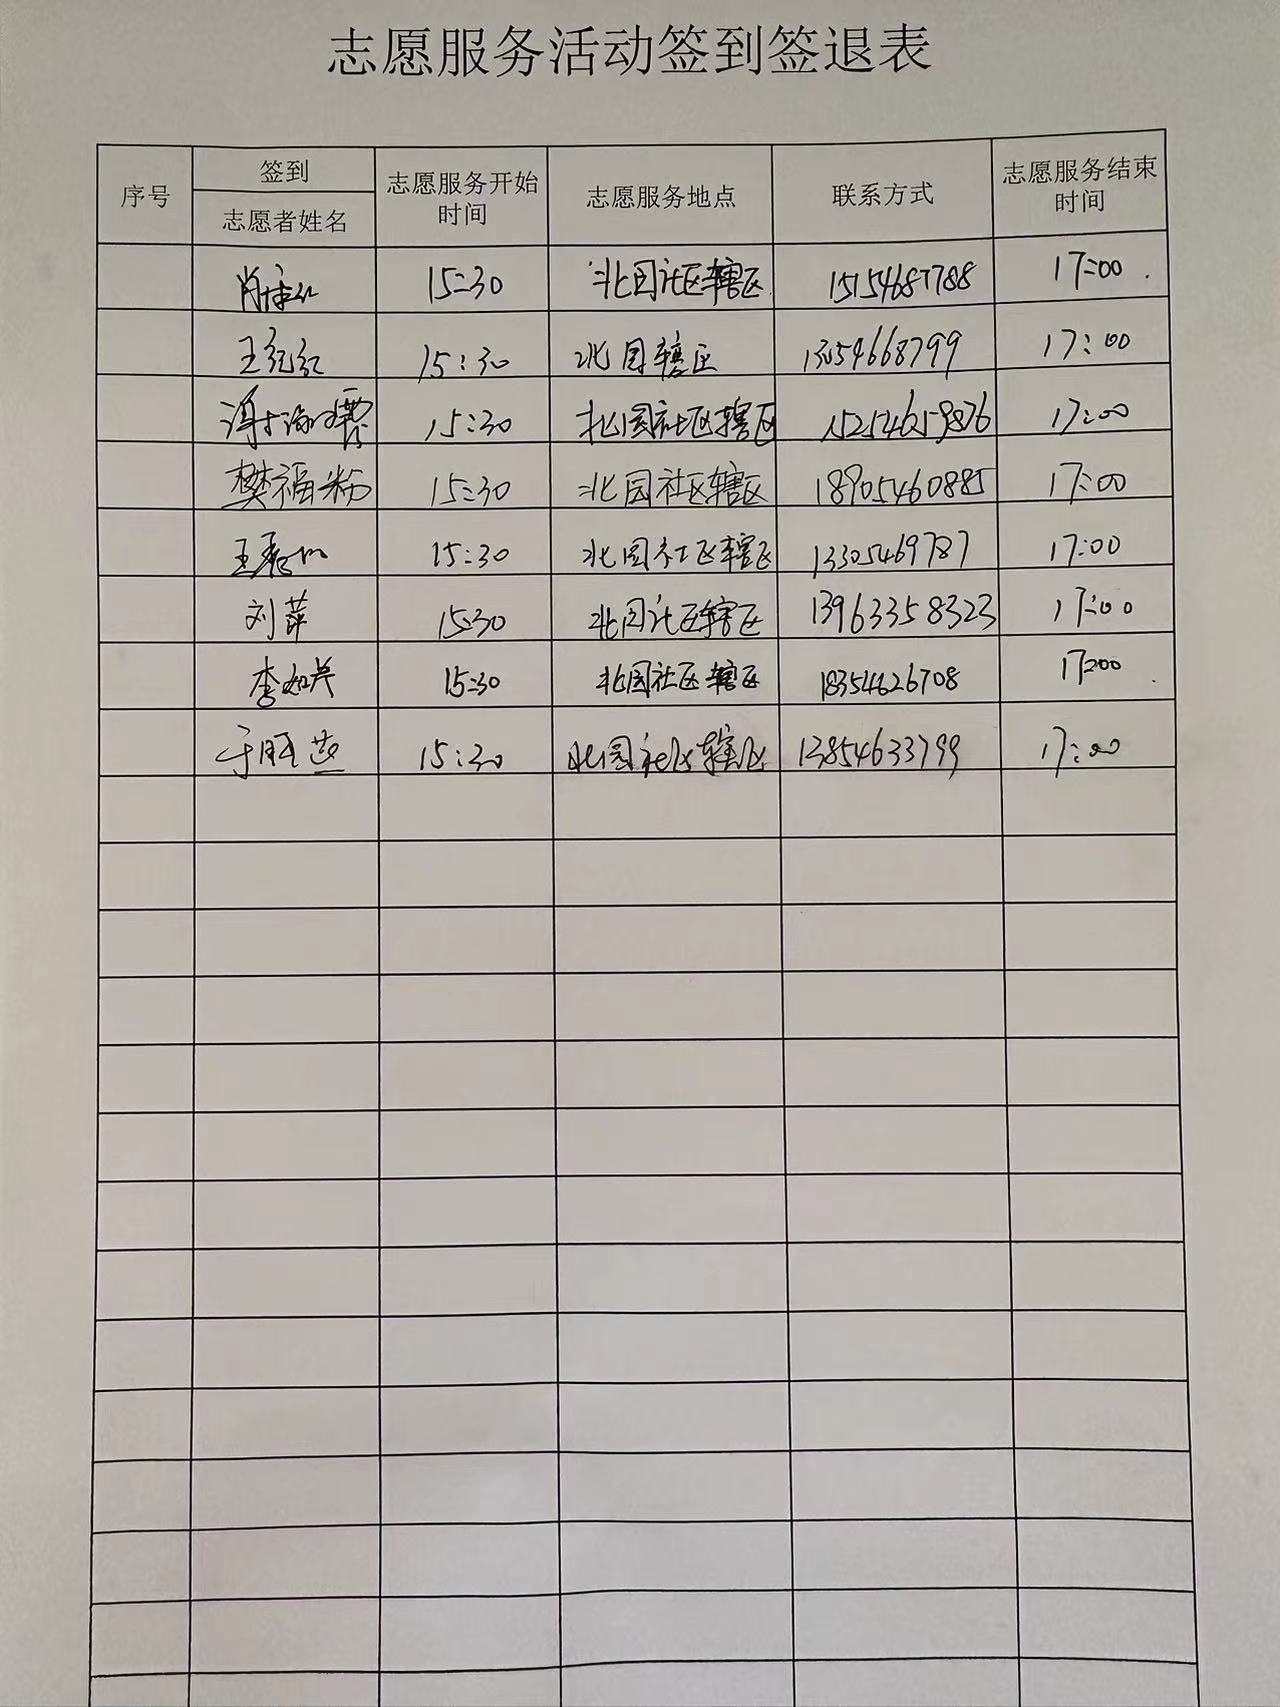 志愿服务活动签到签退表
序号 签到 志愿者姓名 志愿服务开始时间 志愿服务地点 联系方式 志愿服务结束时间
15:30 北园社区辖区 15154687788 17:00
15:30 北园辖区 13054668799 17:00
15:30 北园社区辖区 15254659876 17:00
樊福粉 15:30 北园社区辖区 18905460885 17:00
15:30 北园社区辖区 13305469787 17:00
刘萍 15:30 北园社区辖区 13963358323 17:00
15:30 北园社区辖区 18354626708 17:00
15:30 北园社区辖区 13854633799 17:00